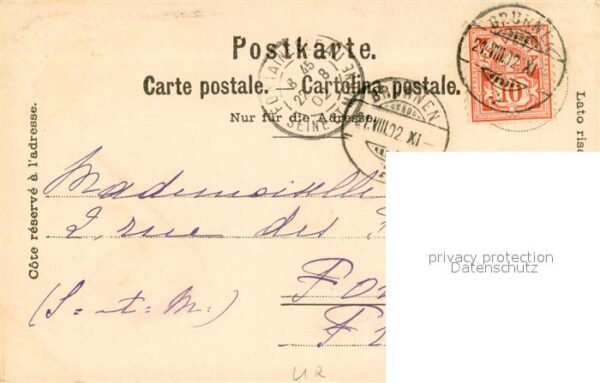 Postkarte.
Carte postale. — Cartolina postale.
Nur für die Adresse.
Côte réservé à l'adresse.
Lato ris
BRUNN
21.VIII.02.XI
10
BRUNNEN
21.VIII.02.XI-
SEINE
Mademoiselle
2, rue des
Fon
(S.-t.-M.)
F
privacy protection
Datenschutz
UR